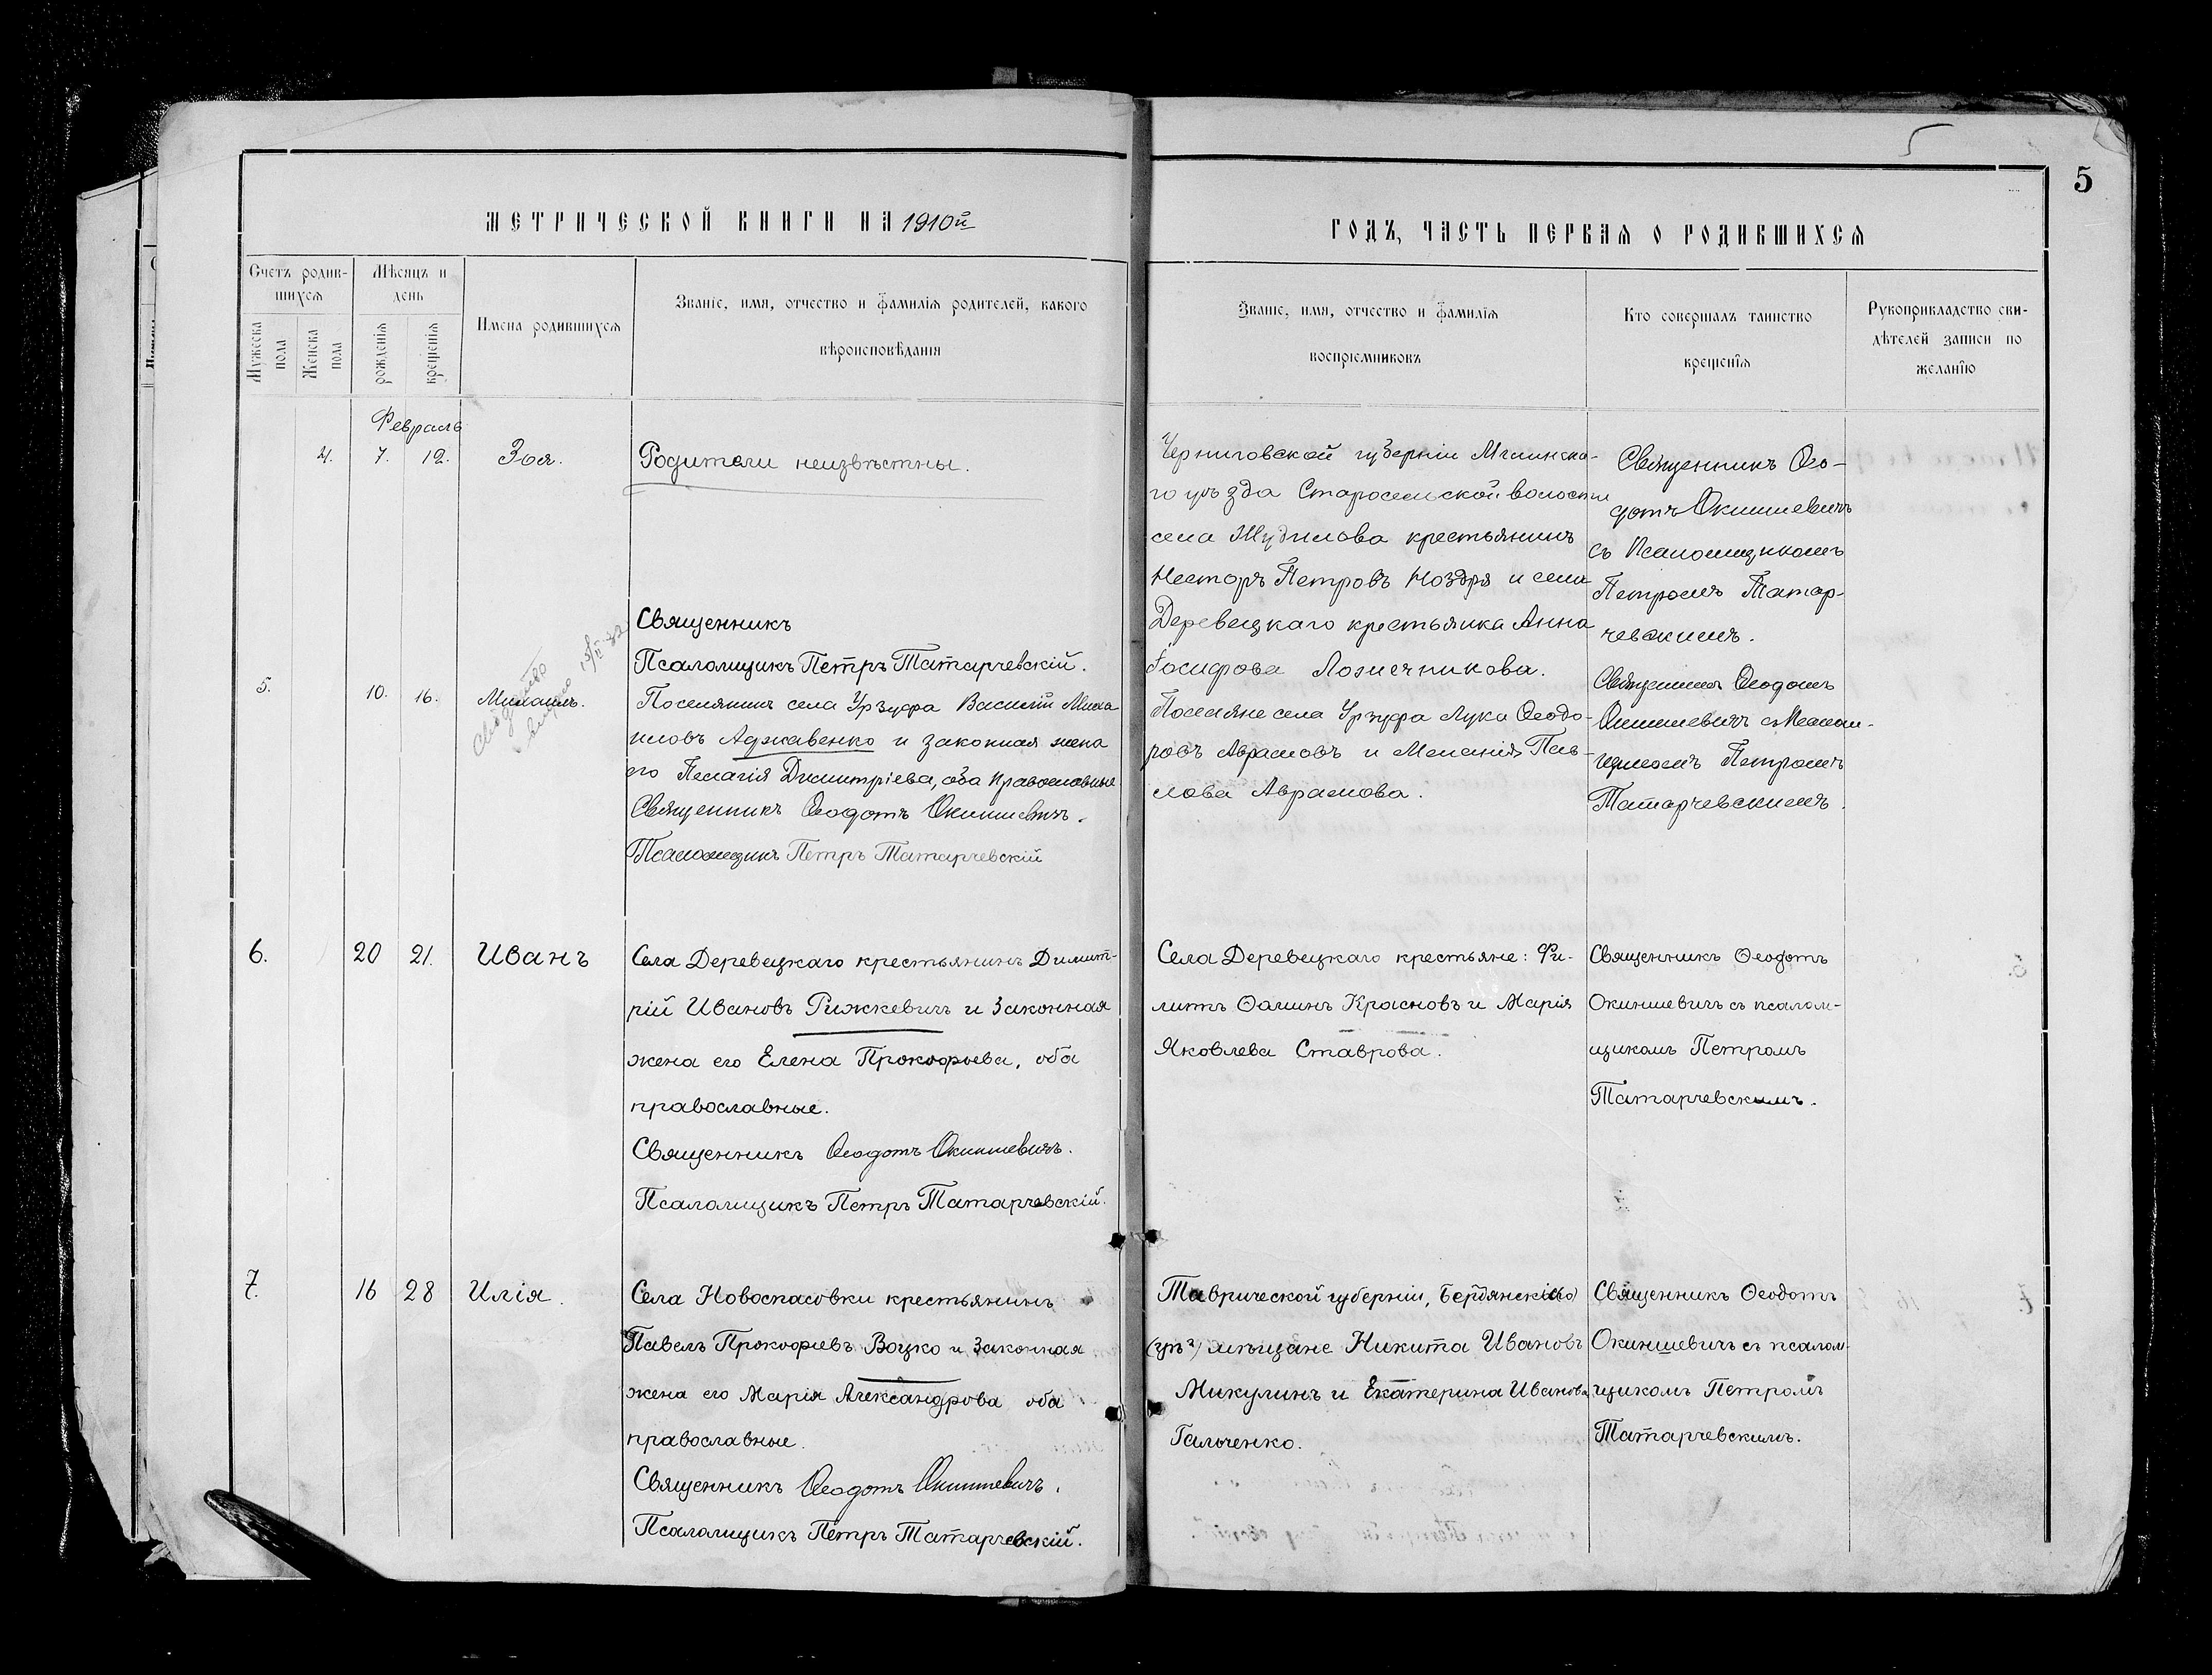 5
5
МЕТРИЧЕСКОЙ КНИГИ НА 1910й
ГОДЪ, ЧАСТЬ ПЕРВАЯ О РОДИВШИХСЯ
Счетъ родив-
шихся
Мужеска пола
Женска пола
Мѣсяцъ и
день
рожденія
крещенія
Имена родившихся
Званіе, имя, отчество и фамилія родителей, какого
вѣроисповѣданія
Званіе, имя, отчество и фамилія
воспріемниковъ
Кто совершалъ таинство
крещенія
Рукоприкладство сви-
дѣтелей записи по
желанію
Февраль
4. 7. 12. Зоя.
Родители неизвѣстны.
Священникъ
Псаломщикъ Петръ Татарчевскій.
Черниговской губерніи Мглинска-
го уѣзда Старосельской волости
села Жудилова крестьянинъ
Несторъ Петровъ Ноздря и села
Деревецкаго крестьянка Анна
Іосифова Лознечникова.
Священникъ Ѳео-
дотъ Окиншевичъ
съ Псаломщикомъ
Петромъ Татар-
чевскимъ.
5. 10. 16. Михаилъ.
Поселянинъ села Урзуфа Василій Миха-
иловъ Аджавенко и законная жена
его Пелагія Димитріева, оба православные
Священникъ Ѳеодотъ Окиншевичъ.
Псаломщикъ Петръ Татарчевскій
Поселяне села Урзуфа Лука Ѳеодо-
ровъ Аврамовъ и Меланія Пав-
лова Аврамова.
Священникъ Ѳеодотъ
Окиншевичъ съ Псалом-
щикомъ Петромъ
Татарчевскимъ.
6. 20 21. Иванъ
Села Деревецкаго крестьянинъ Димит-
рій Ивановъ Рижкевичъ и законная
жена его Елена Прокофьева, оба
православные.
Священникъ Ѳеодотъ Окиншевичъ.
Псаломщикъ Петръ Татарчевскій.
Села Деревецкаго крестьяне: Фи-
липъ Ѳоминъ Красновъ и Марія
Яковлева Ставрова.
Священникъ Ѳеодотъ
Окиншевичъ съ псалом-
щикомъ Петромъ
Татарчевскимъ.
7. 16 28 Илія.
Села Новоспасовки крестьянинъ
Павелъ Прокофіевъ Воцко и законная
жена его Марія Александрова оба
православные.
Священникъ Ѳеодотъ Окиншевичъ.
Псаломщикъ Петръ Татарчевскій.
Таврической губерніи, Бердянскіе
мѣщане Никита Ивановъ
Микулинъ и Екатерина Иванова
Гальченко.
Священникъ Ѳеодотъ
Окиншевичъ съ псалом-
щикомъ Петромъ
Татарчевскимъ.